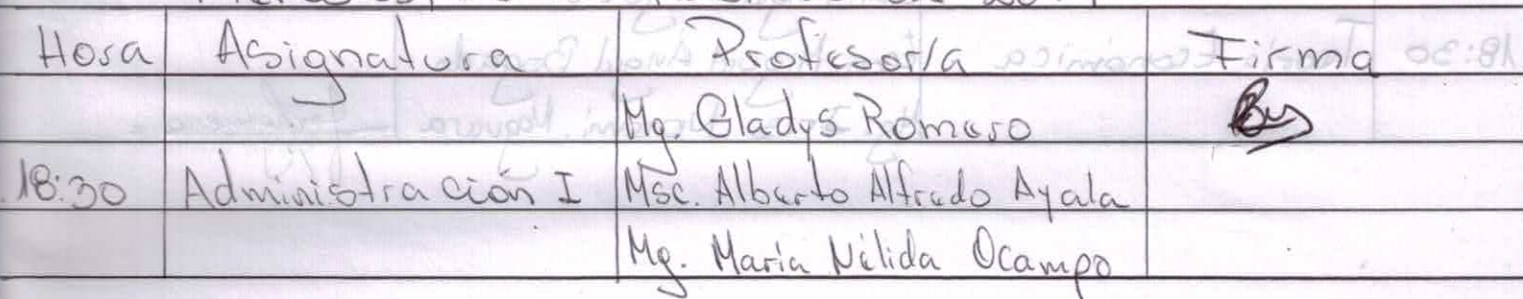 Hora Asignatura Profesor/a Firma
Mg. Gladys Romero
18:30 Administración I Msc. Alberto Alfredo Ayala
Mg. María Nélida Ocampo